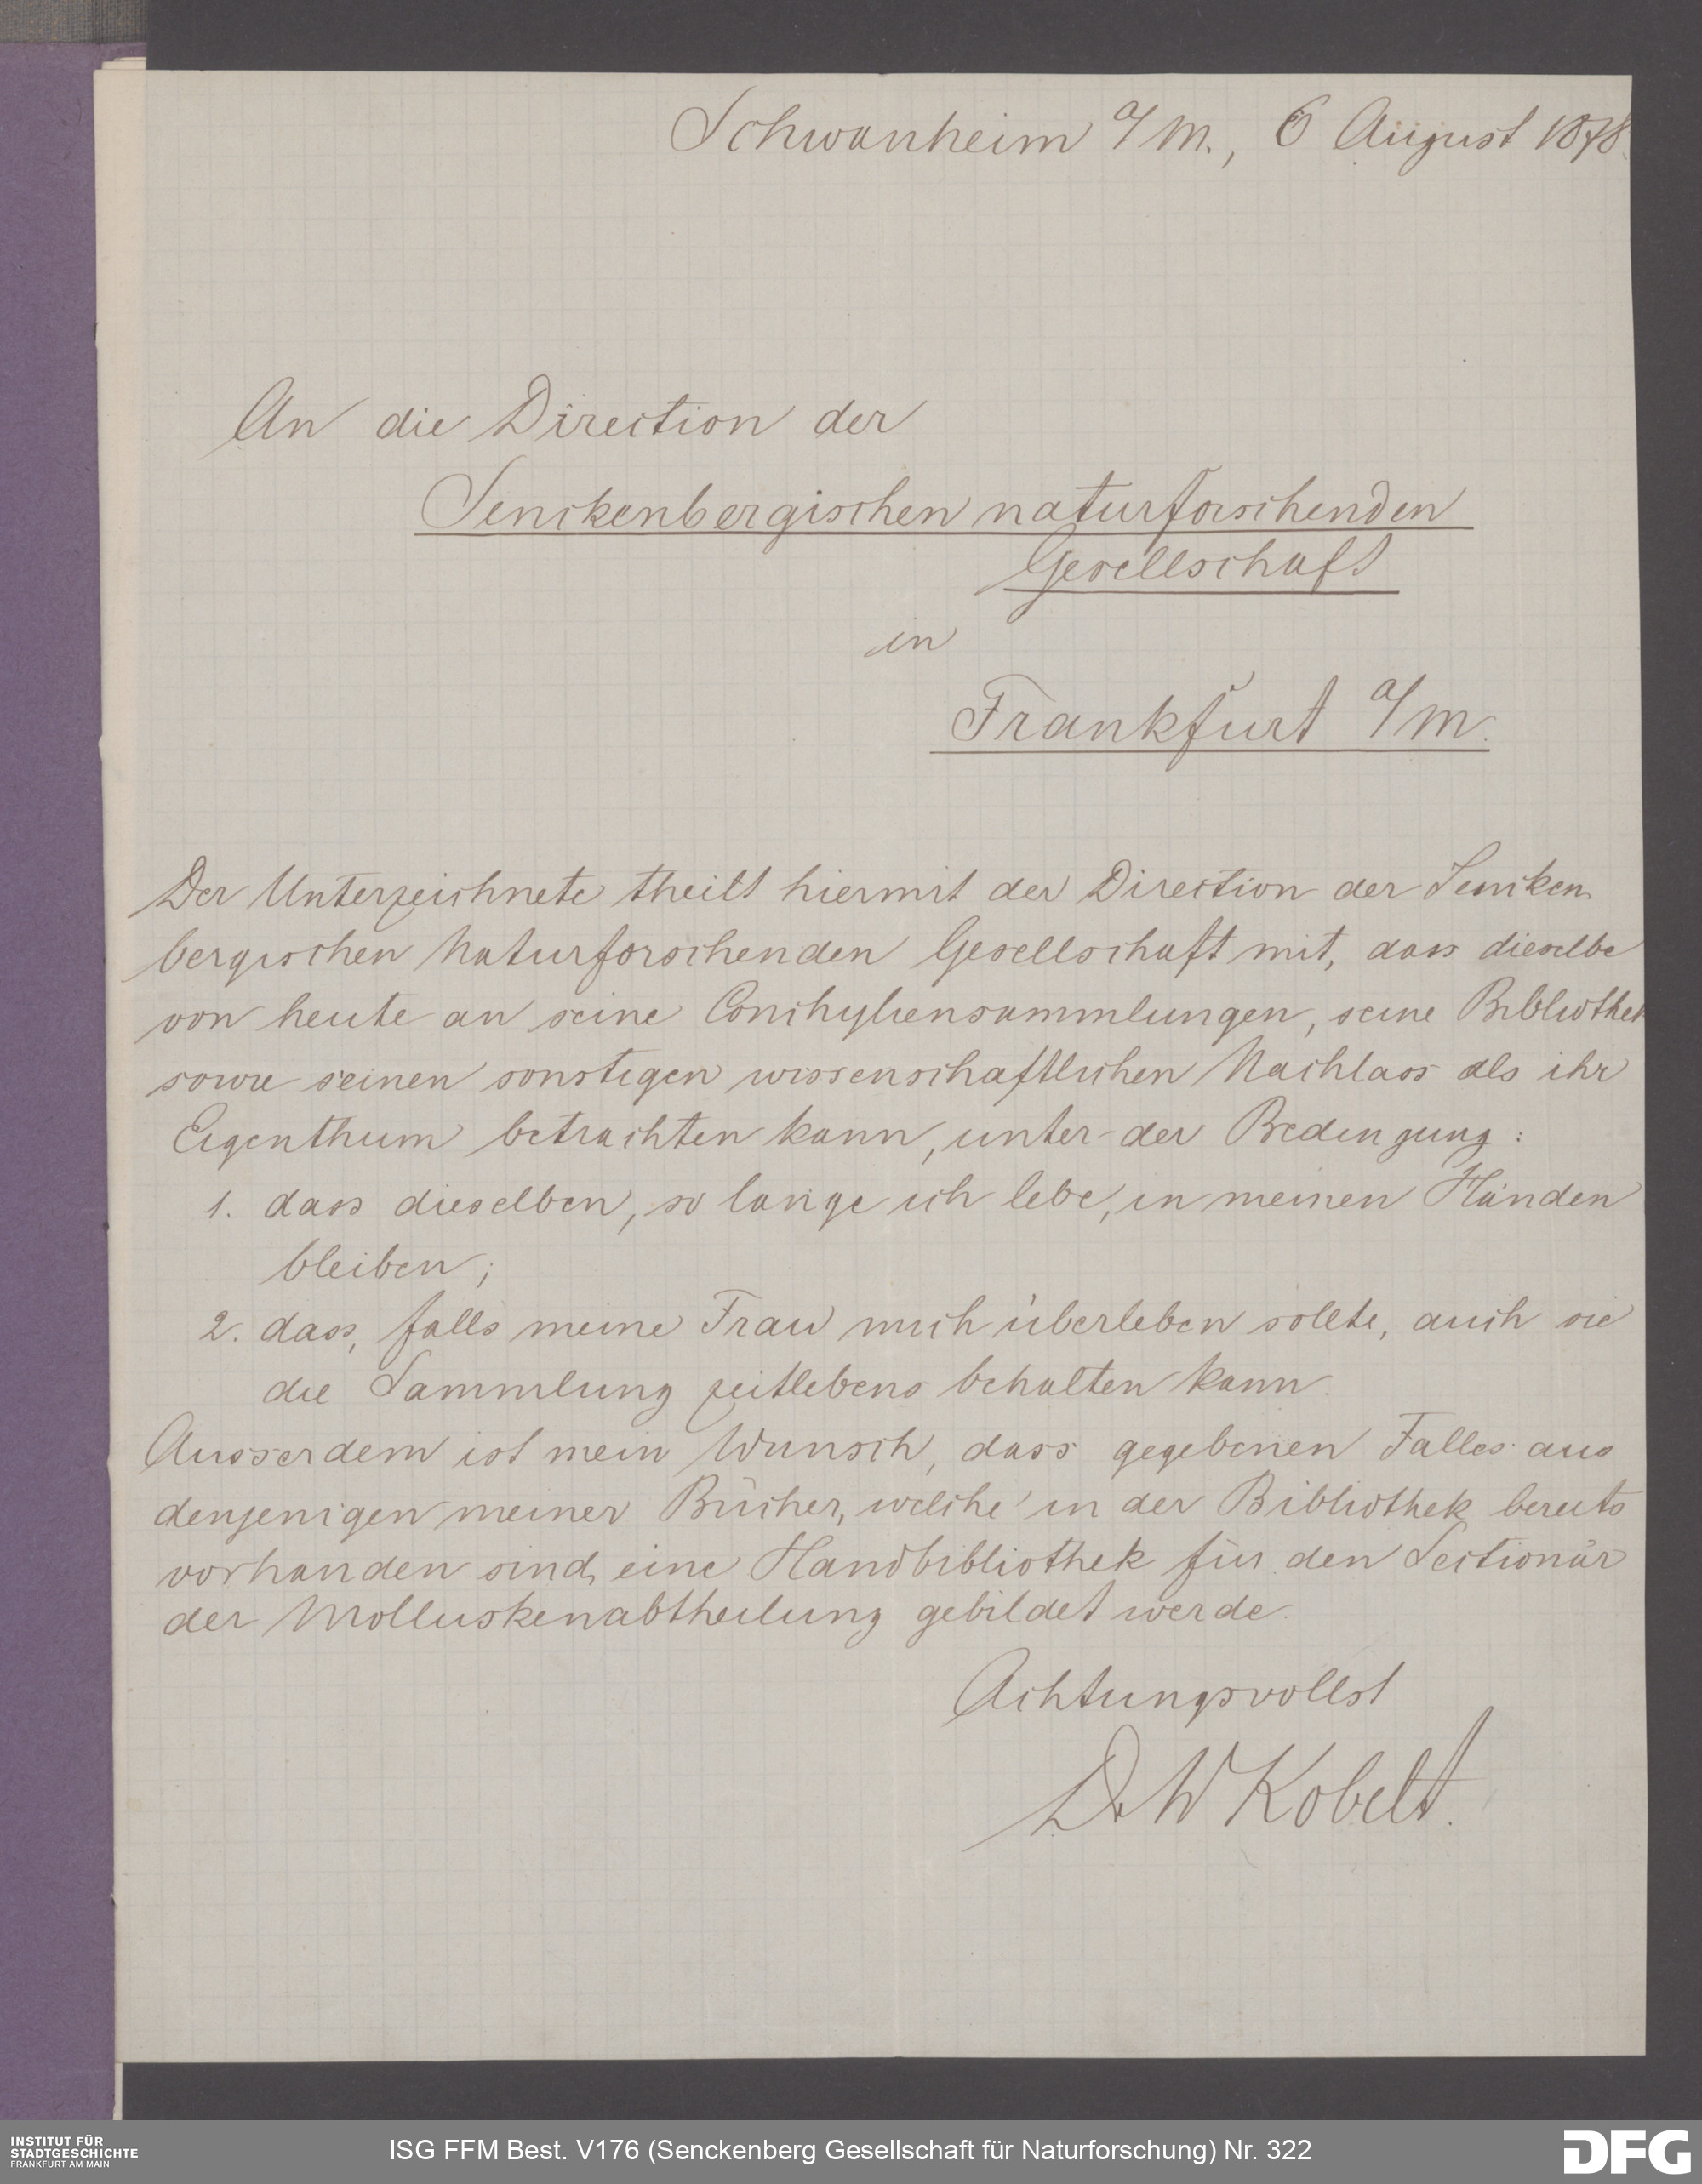 Schwanheim a/M., 6 August 1878.
An die Direction der
Senckenbergischen naturforschenden
Gesellschaft
in
Frankfurt a/M.
Der Unterzeichnete theilt hiermit der Direction der Sencken
bergischen Naturforschenden Gesellschaft mit, dass dieselbe
von heute an seine Conchyliensammlungen, seine Bibliothek
sowie seinen sonstigen wissenschaftlichen Nachlass als ihr
Eigenthum betrachten kann, unter der Bedingung:
1. dass dieselben, so lange ich lebe, in meinen Händen
bleiben;
2. dass, falls meine Frau mich überleben sollte, auch sie
die Sammlung zeitlebens behalten kann.
Ausserdem ist mein Wunsch, dass gegebenen Falles aus
denjenigen meiner Bücher, welche in der Bibliothek bereits
vorhanden sind, eine Handbibliothek für den Sectionär
der Molluskenabtheilung gebildet werde.
Achtungsvollst
Dr W Kobelt.
INSTITUT FÜR
STADTGESCHICHTE
FRANKFURT AM MAIN
ISG FFM Best. V176 (Senckenberg Gesellschaft für Naturforschung) Nr. 322
DFG